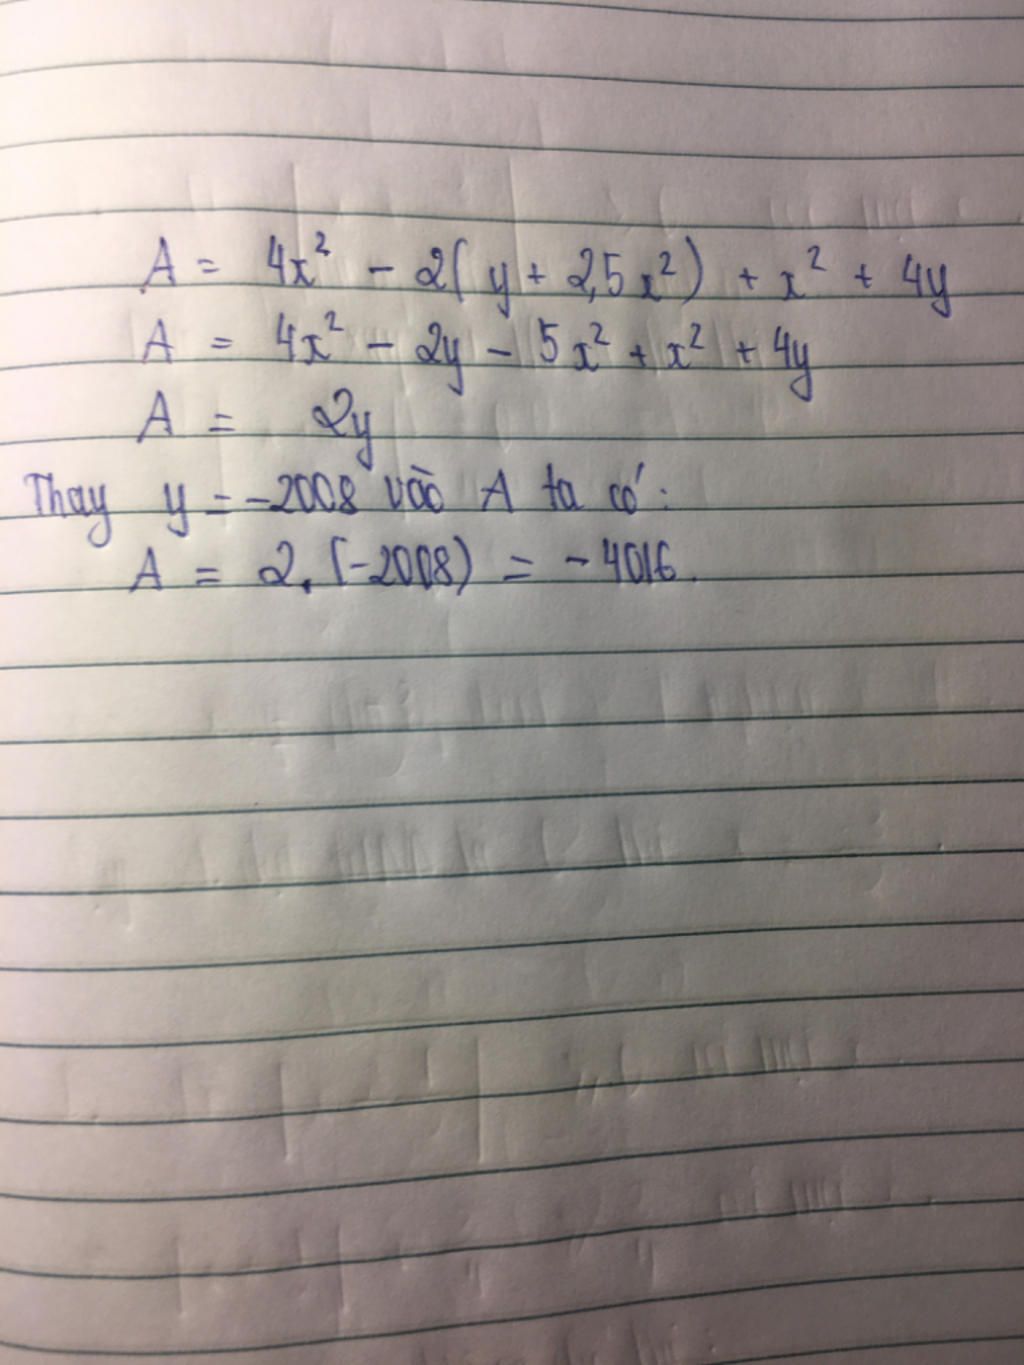 A = 4x² - 2(y + 2,5x²) + x² + 4y
A = 4x² - 2y - 5x² + x² + 4y
A = 2y
Thay y = -2008 vào A ta có:
A = 2.(-2008) = -4016.